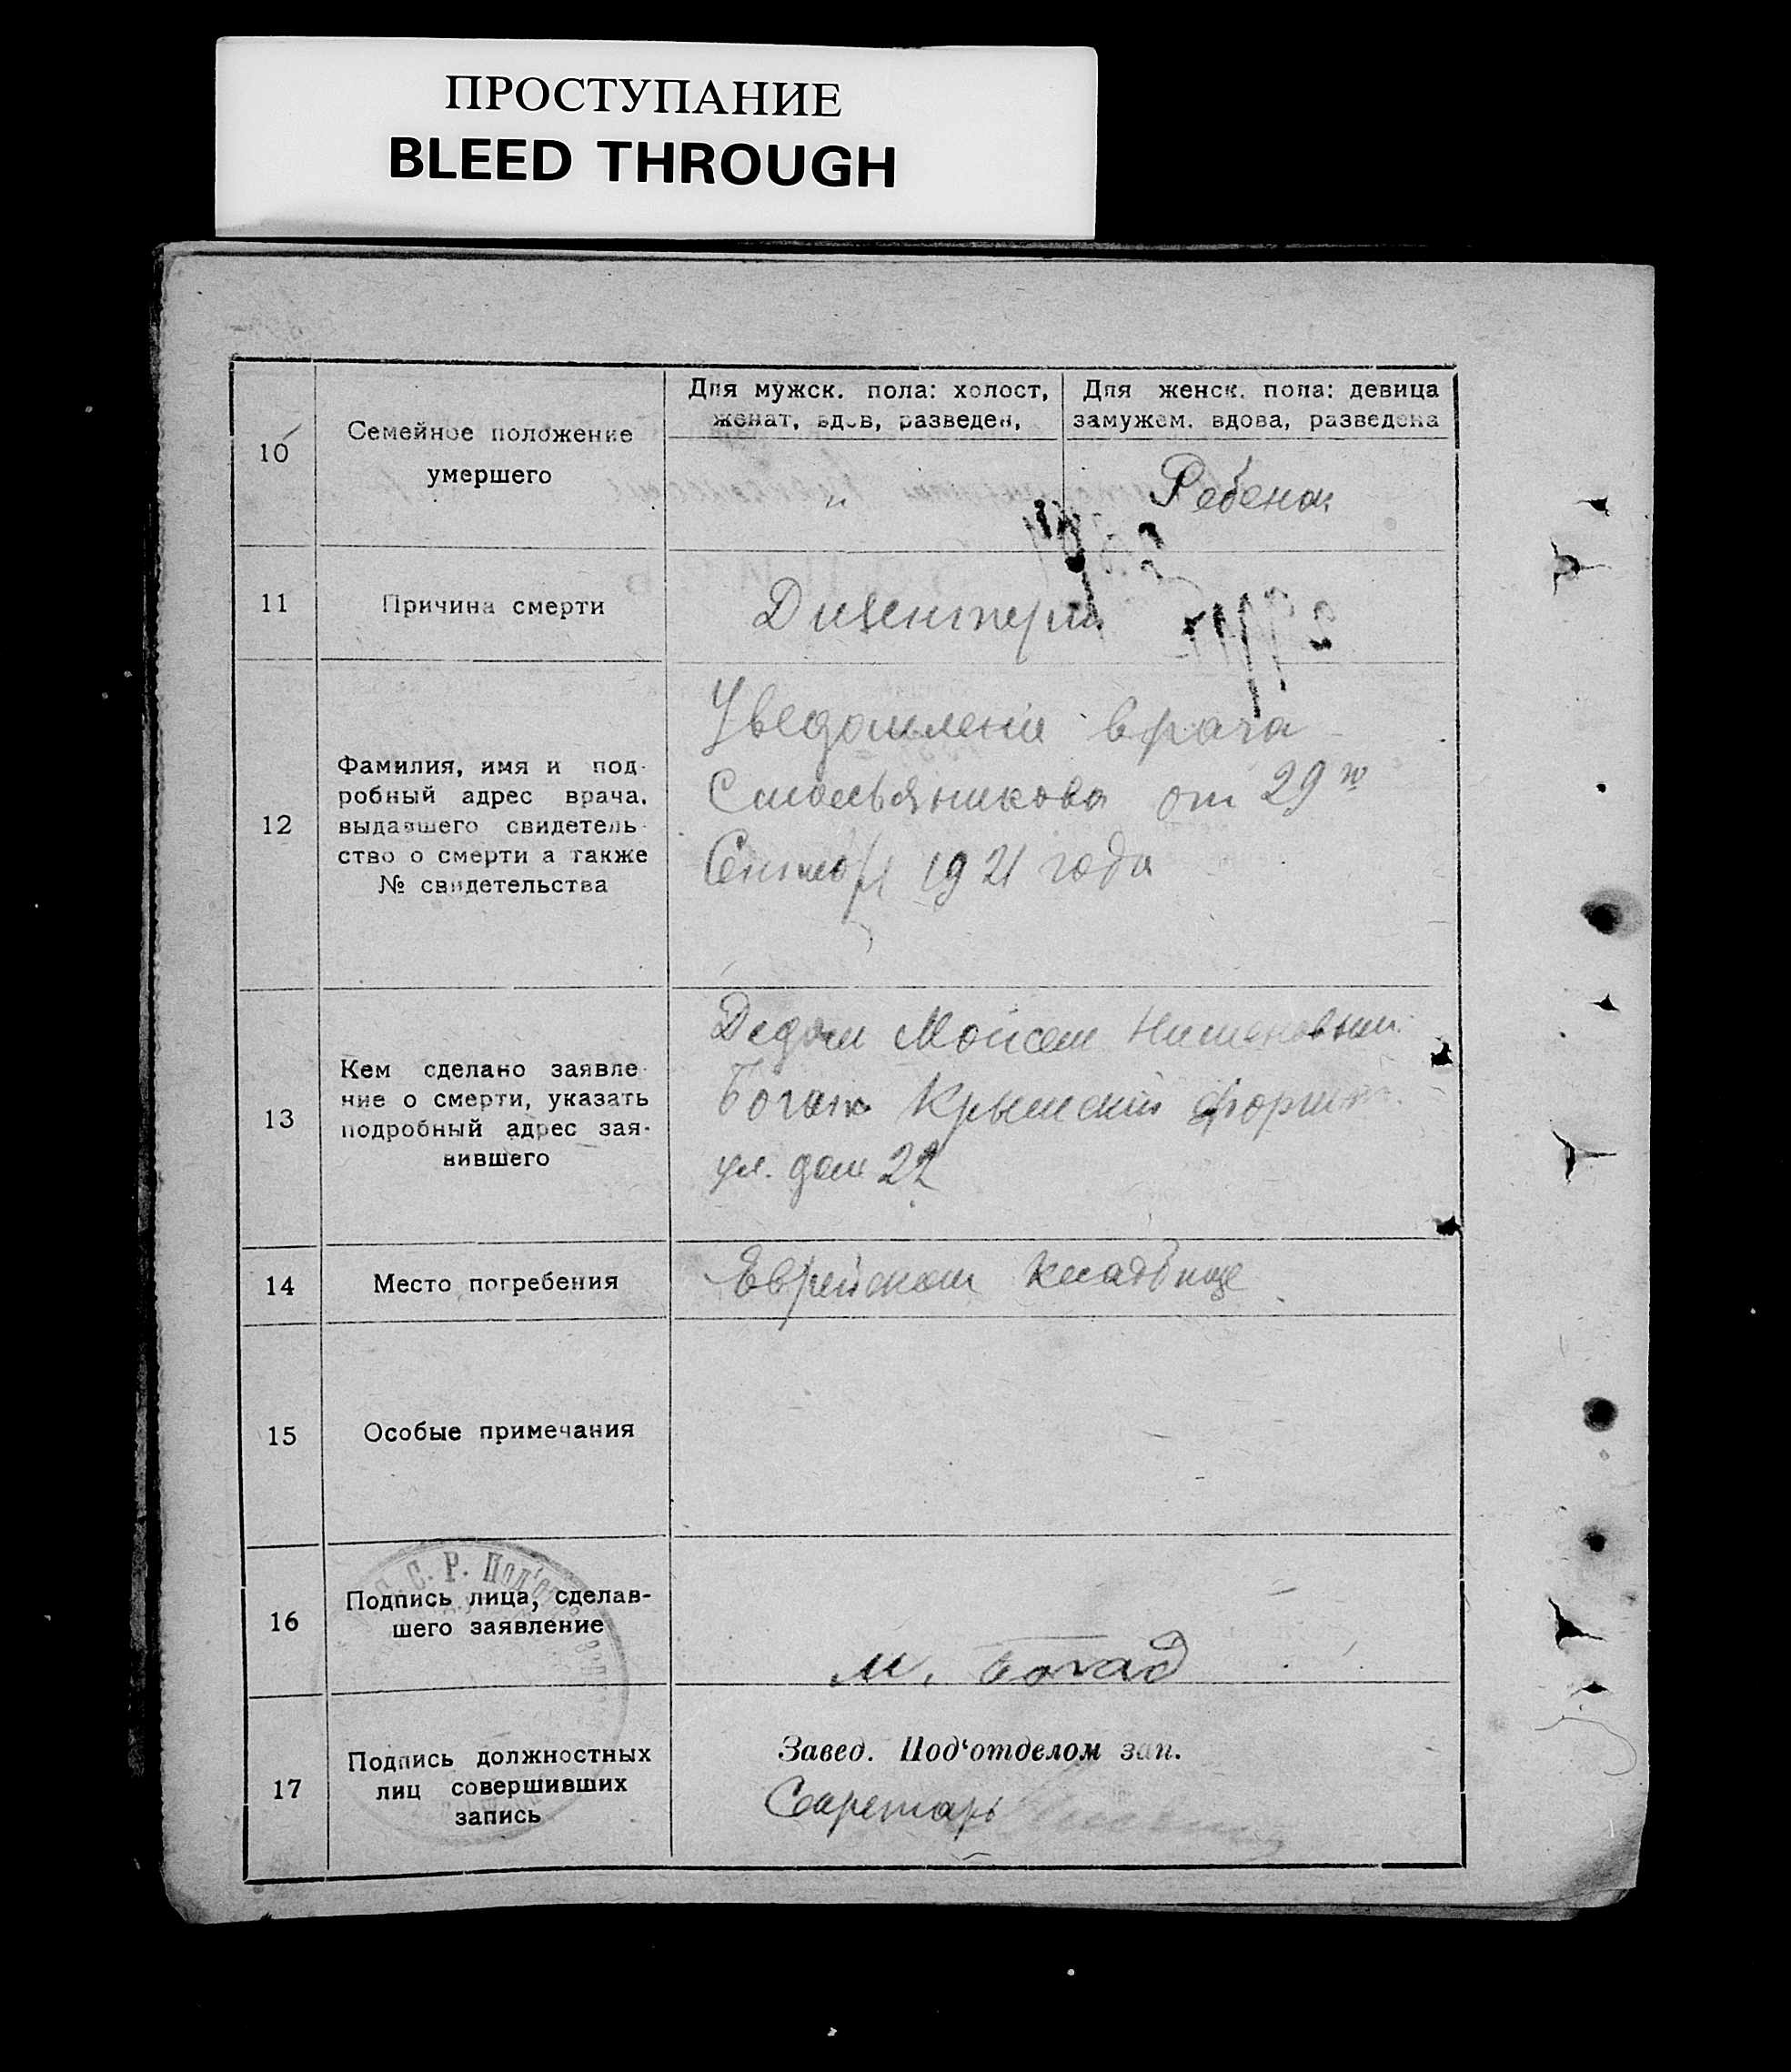 ПРОСТУПАНИЕ
BLEED THROUGH
10
Семейное положение
умершего
Для мужск. пола: холост,
женат, вдов, разведен,
Для женск. пола: девица
замужем. вдова, разведена
"
Ребенок
11
Причина смерти
Дизентерия
12
Фамилия, имя и под-
робный адрес врача,
выдавшего свидетель-
ство о смерти а также
№ свидетельства
Уведомление врача
Смольяникова от 29го
Сентября 1921 года
13
Кем сделано заявле-
ние о смерти, указать
подробный адрес зая-
вившего
Дедом Мойсем
Крымский
ул. дом 22
14
Место погребения
Еврейском кладбище
15
Особые примечания
16
Подпись лица, сделав-
шего заявление
М. Богад
17
Подпись должностных
лиц совершивших
запись
Завед. Под'отделом зап.
Секретарь
С. Р. Под'о